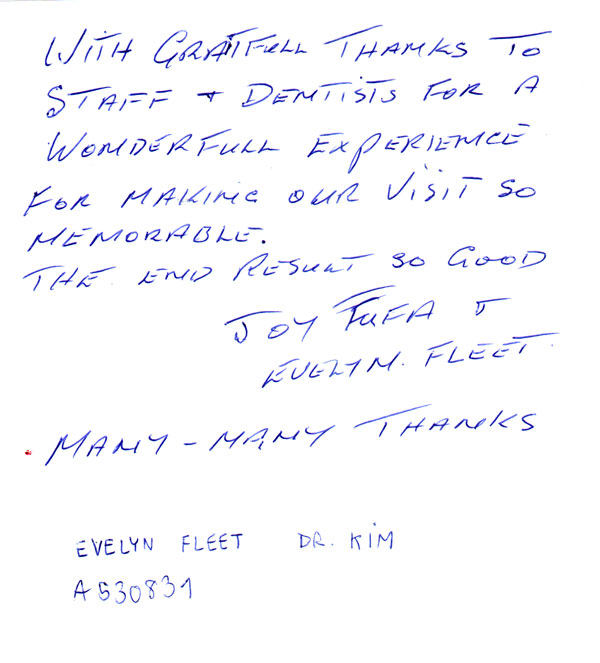 WITH GRATFULL THANKS TO
STAFF + DENTISTS FOR A
WONDERFULL EXPERIENCE
FOR MAKING OUR VISIT SO
MEMORABLE.
THE END RESULT SO GOOD
JOY FUFA &
EVELYN. FLEET.
MANY - MANY THANKS
EVELYN FLEET DR. KIM
A530831